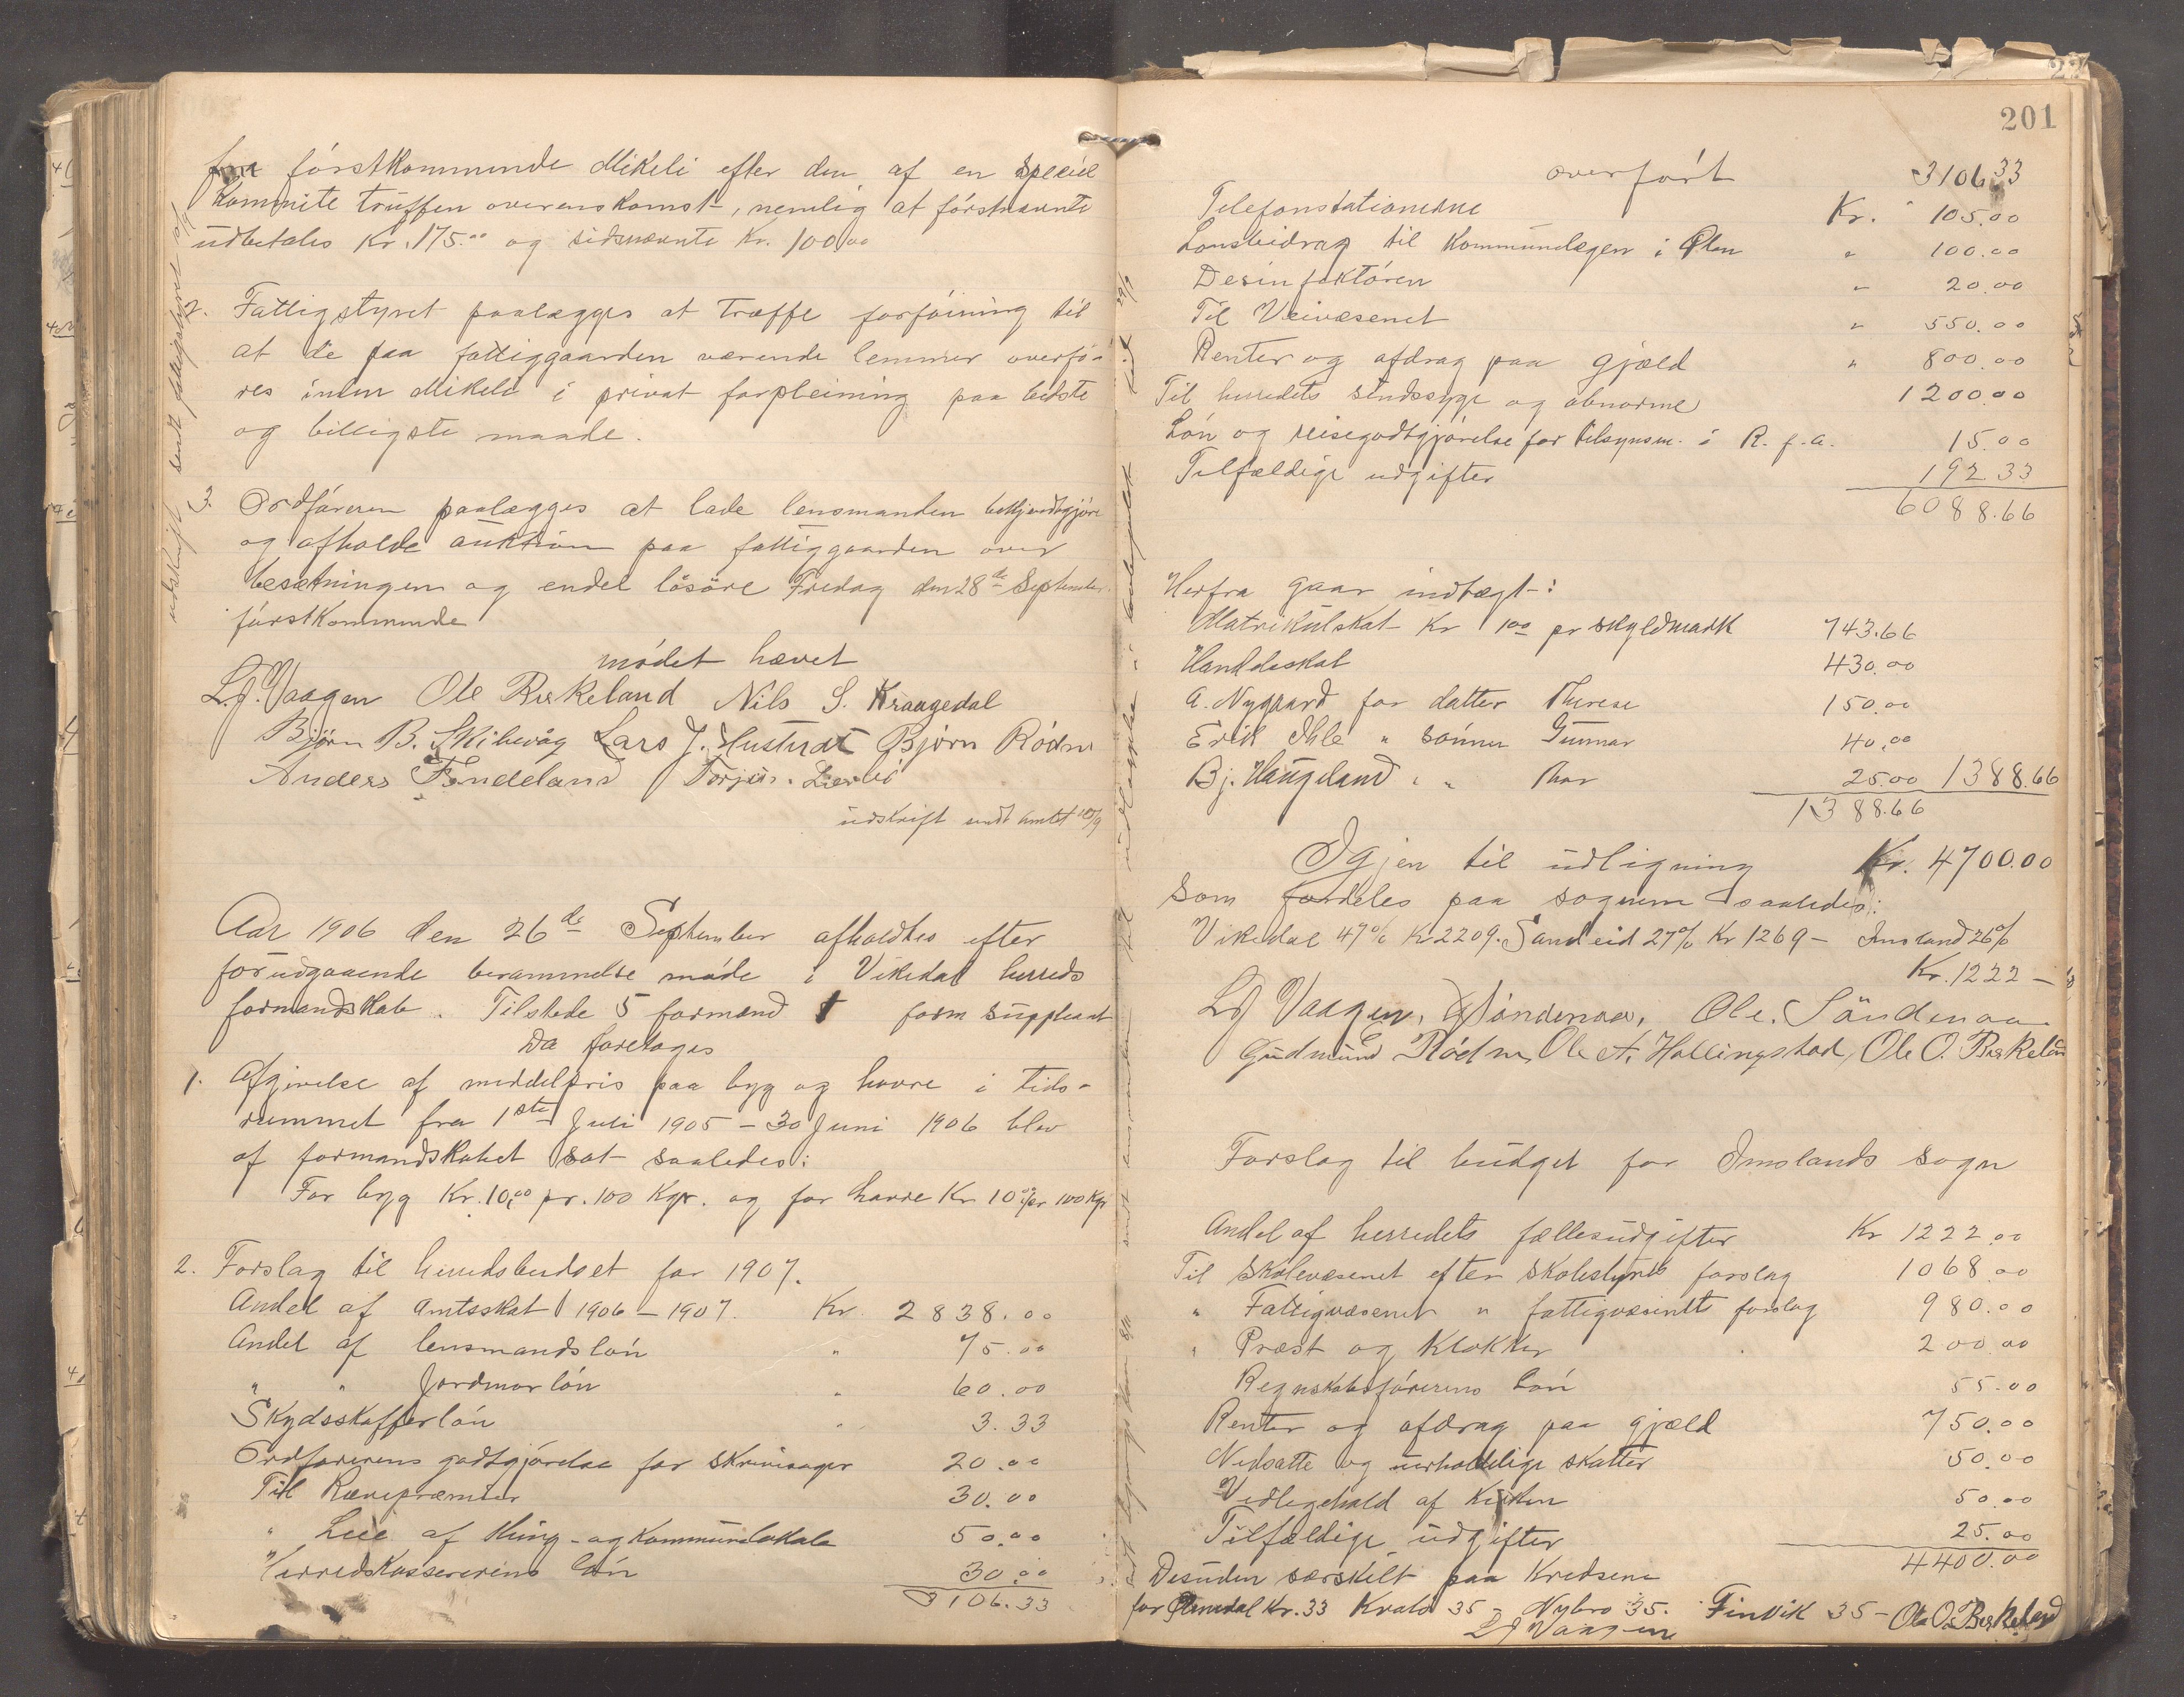 fra förstkommende Mikeli efter den af en speciel
Kommite truffen overenskomst, nemlig at förstnævnte
udbetales Kr. 175.00 og sidsnævnte Kr. 100.00
2. Fattigstyret paalægges at træffe forföining til
at de paa fattiggaarden værende lemmer overfö-
res inden Mikeli i privat forpleining paa bedste
og billigste maade.
3. Ordföreren paalægges at lade lensmanden bekjendtgjöre
og afholde auktion paa fattiggaarden over
besætningen og endel lösöre Fredag den 28de September
förstkommende
mödet hævet
L.J. Vaagen Ole Birkeland Nils S. Kraagedal
Björn B. Skibevåg Lars J. Hustvedt Björn Rödne
Anders Fendeland Torjus Lerlie
udskrift sendt amtet 18/9
Aar 1906 den 26de September afholdtes efter
forudgaaende berammelse möde i Vikedal herreds
formandskab. Tilstede 5 formænd 1 form suppleant
Da foretoges
1. Afgivelse af middelpris paa byg og havre i tids-
rummet fra 1ste Juli 1905 - 30 Juni 1906 blev
af formandskabet sat saaledes:
For byg Kr. 10,00 pr. 100 Kgr. og for havre Kr 10.00 pr 100 Kgr
2. Forslag til herredsbudget for 1907.
Andel af amtsskat 1906 - 1907. Kr. 2838.00
Andel af lensmandslön " 75.00
" " Jordmorlön " 60.00
Skydsskafferlön " 3.33
Ordförerens godtgjörelse for skrivsager 20.00
Til Rævepræmier 30.00
" Leie af thing- og kommunelokale 50.00
Herredskassererens lön 30.00
3106.33
201
overfört 3106 33
Telefonstationerne Kr. 105.00
Lönsbidrag til Kommunelægen i Ølen " 100.00
Desinfektören " 20.00
Til Veivæsenet " 550.00
Renter og afdrag paa gjæld " 800.00
Til herredets sindssyge og abnorme 1200.00
Lön og reisegodtgjörelse for tilsynsm. i R. f. a. 15.00
Tilfældige udgifter 192 33
6088.66
Herfra gaar indtægt:
Matrikulskat Kr 1 00 pr skyldmark 743.66
Handelsskat 430.00
A. Nygaard for datter Therese 150.00
Erik Ihle " sönnen Gunnar 40.00
Bj. Haugeland " " Thor 25.00 1388.66
1388.66
Igjen til udligning Kr. 4700.00
som fordeles paa sognene saaledes:
Vikedal 47% Kr 2209. Sandeid 27% Kr 1269 - Imsland 26%
Kr. 1222 -
LJ Vaagen, Söndenaa, Ole. Söndenaa
Gudmund E Rödne, Ole A. Hallingstad, Ole O. Birkeland
Forslag til budget for Imslands sogn
Andel af herredets fællesudgifter Kr 1222.00
Til Skolevæsenet efter skolestyrets forslag 1068.00
" Fattigvæsenet " fattigvæsenets forslag 980.00
" Præst og Klokker 200.00
Regnskabsförerens lön 55.00
Renter og afdrag paa gjæld 750.00
Nedsatte og uerholdelige skatter 50.00
Vedligehold af Kirken 50.00
Tilfældige udgifter 25.00
4400.00
Desuden særskilt paa Kredsene
for Ølmedal Kr. 33 Kvalö 35 - Nybro 35. Finvik 35 - Ole O. Birkeland
LJ Vaagen